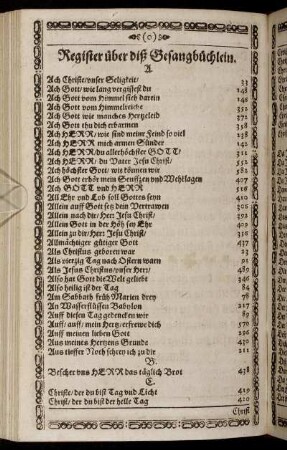 (o)
Register über diß Gesangbüchlein.
A.
Ach Christe/unser Seligkeit/ 33
Ach Gott/wie lang vergissest du 148
Ach Gott vom Himmel sieh darein 146
Ach Gott vom Himmelreiche
Ach Gott wie manches Hertzeleid
Ach Gott thu dich erbarmen
Ach HERR/wie sind meine Feind so viel 138
Ach HERR mich armen Sünder 142
Ach HERR/du allerhöchster GOTT/
Ach HERR/du Vater Jesu Christ/
Ach höchster Gott/wie können wir
Ach Gott erhör mein Seufftzen und Wehklagen 407
Ach GOTT und HERR
All Ehr und Lob soll Gottes seyn
Allein auff Gott setz dein Vertrawen
Allein nach dir/Herr Jesu Christ/
Allein Gott in der Höh sey Ehr
Allein zu dir/Herr Jesu Christ/
Allmächtiger gütiger Gott 437
Als Christus geboren war 23
Als viertzig Tag nach Ostern warn 91
Als Jesus Christus/unser Herr/ 489
Also hat Gott die Welt geliebt 346
Also heilig ist der Tag 84
Am Sabbath früh Marien drey 78
An Wasserflüssen Babylon 217
Auff diesen Tag gedencken wir 89
Auff/auff/mein Hertz/erfrewe dich 570
Auff meinen lieben Gott
Aus meines Hertzens Grunde 430
Aus tieffer Noth schrey ich zu dir
B.
Bescher uns HERR das täglich Brot 438
C.
Christe/der du bist Tag und Liecht 419
Christ/der du bist der helle Tag 420
Christ